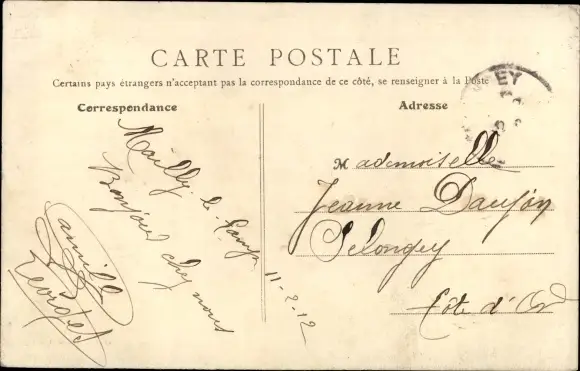 CARTE POSTALE
Certains pays étrangers n'acceptant pas la correspondance de ce côté, se renseigner à la Poste
Correspondance
Adresse
Mailly-le-Camp
Bonjour chez vous
11-2-12
Camille
Georges
Mademoiselle
Jeanne
Selongey
Côte d'Or
EY